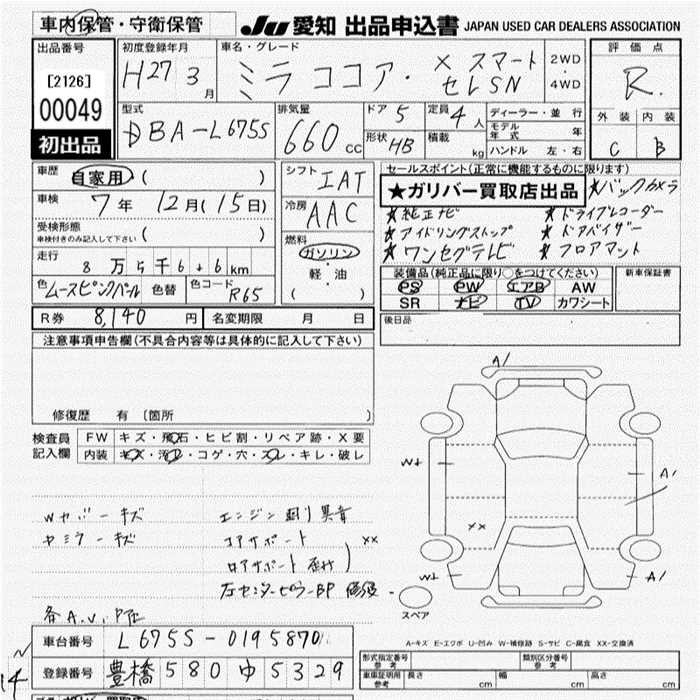 車内保管・守衛保管
JU 愛知 出品申込書 JAPAN USED CAR DEALERS ASSOCIATION
出品番号
[2126]
00049
初出品
初度登録年月
H27 3月
車名・グレード
ミラココア・X スマート
セレSN
2WD・4WD
評価点
R
外装 内装
C B
型式
DBA-L675S
排気量
660 cc
ドア 5
形状 HB
定員 4人
積載 kg
ディーラー・並行
モデル年式 年
ハンドル 左・右
車歴
自家用 ( )
車検
7年 12月(15日)
受検形態
車検付きのみ記入して下さい ( )
走行
8万5千6+6km
色 ムースピンクパール 色替 色コード R65
シフト IAT
冷房 AAC
燃料
ガソリン
軽・油
( )
セールスポイント(正常に機能するものに限ります)
★ガリバー買取店出品 ★バックカメラ
★純正ナビ ★ドライブレコーダー
★アイドリングストップ ★ドアバイザー
★ワンセグテレビ ★フロアマット
装備品(純正品に限り○をつけてください)
PS PW エアB AW
SR ナビ TV カワシート
新車保証書
後日品
R券 8,140円 名変期限 月 日
注意事項申告欄(不具合内容等は具体的に記入して下さい)
修復歴 有 〔箇所 〕
検査員記入欄
FW キズ・飛石・ヒビ割・リペア跡・X要
内装 キズ・汚レ・コゲ・穴・スレ・キレ・破レ
Wカバーキズ
ヤミラーキズ
エンジン廻り異音
コアサポート XX
ロアサポート 歪み
左センターピラーBP 修復
各A.U.P凹
A1
W+
A1
XX
W+
A1
スペア
A-キズ E-エクボ U-凹み W-補修跡 S-サビ C-腐食 XX-交換済
車台番号 L675S-0195870
登録番号 豊橋 580 ゆ 5329
14
形式指定番号 参考
類別区分番号 参考
車庫証明用 参考 長さ cm 幅 cm 高さ cm